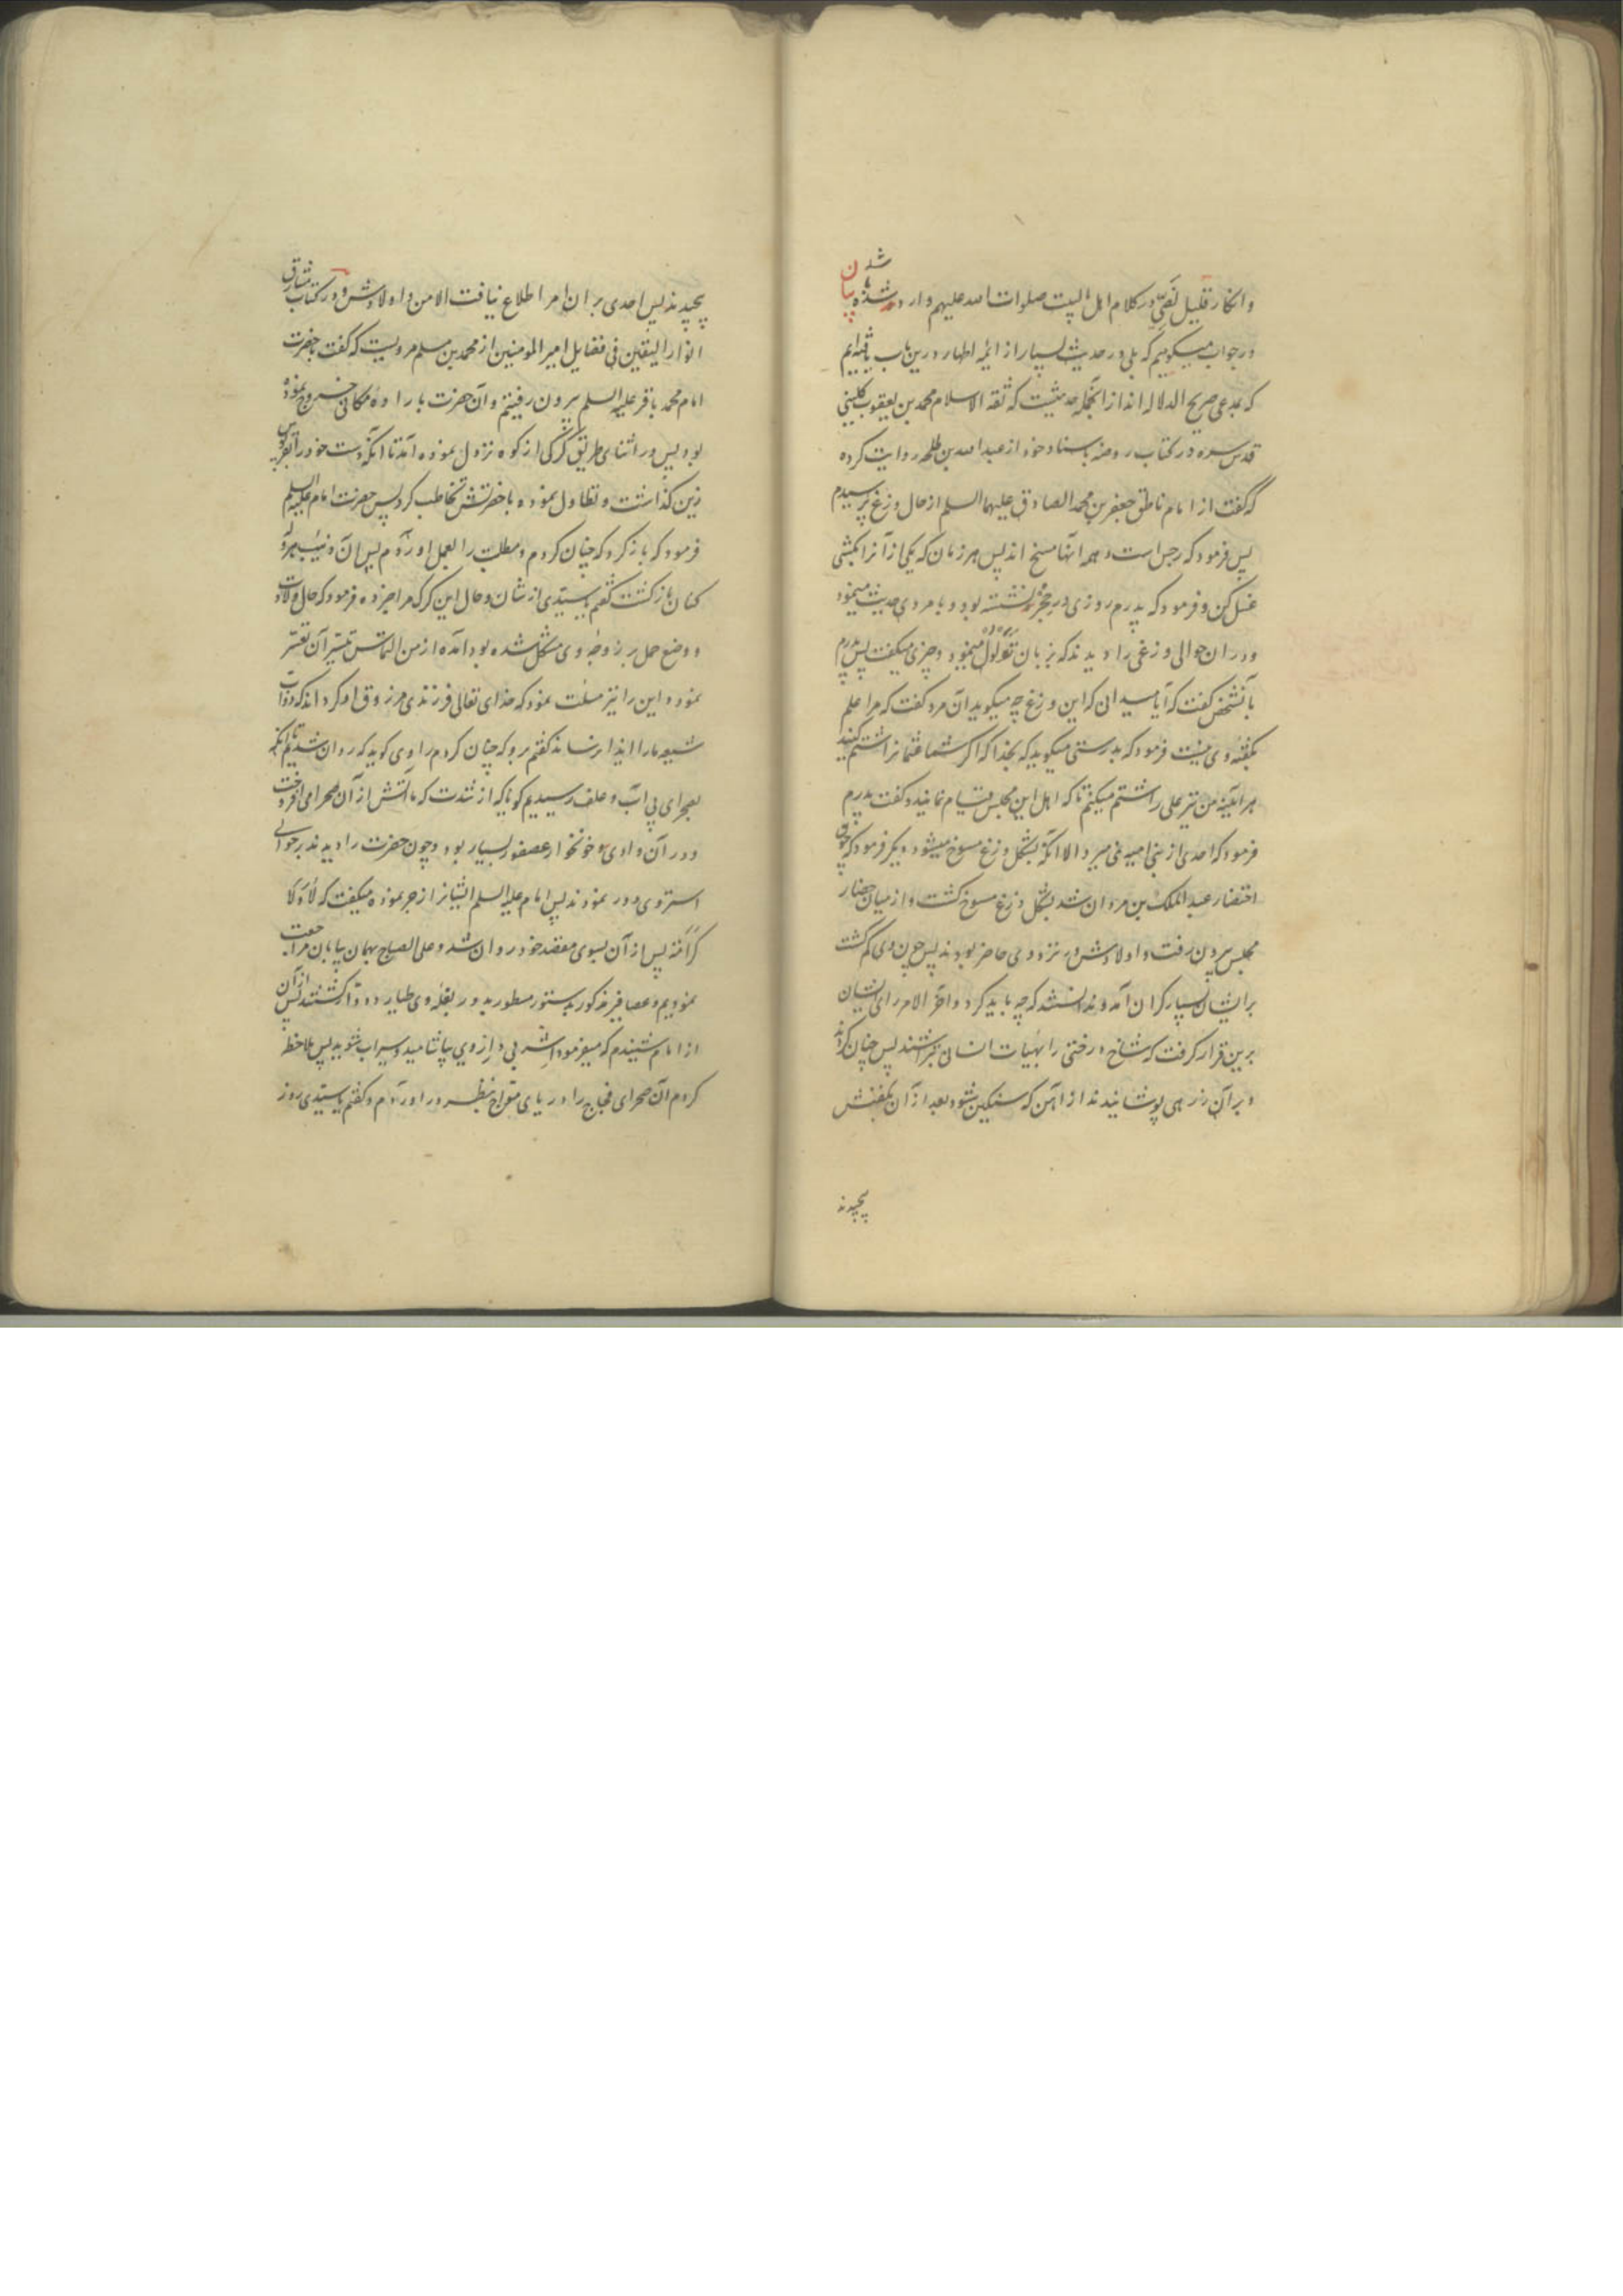 و انکار قلیل نصّی در کلام اهل البیت صلوات الله علیهم وارد شده یا نه
در جواب میگوییم که بلی در حدیث بسیار از ائمه اطهار درین باب
که بمدعی صریح الدلاله اند از آنجمله حدیثیست که ثقه الاسلام محمد بن یعقوب کلینی
قدس سره در کتاب روضه باسناد خود از عبد الله بن طلحه روایت کرده
که گفت از امام ناطق جعفر بن محمد الصادق علیهما السلم از حال وزغ پرسیدم
پس فرمود که رجس است و همه آنها مسخ اند پس هر زمان که یکی از آنرا بکشی
غسل کن و فرمود که پدرم روزی در حجر نشسته بود و با مردی حدیث مینمود
و در ان حوالی وزغی را دیدند که بزبان تولول مینمود و چیزی میگفت پس پدرم
بآنشخص گفت که آیا میدانی که این وزغ چه میگوید آن مرد گفت که مرا علم
بگفته وی نیست فرمود که بدرستی میگوید که بخدا که اگر شما عثمانرا شتم کنید
هر آینه من نیز علی را شتم میکنم تا که اهل این مجلس قیام نمایند و گفت پدرم
فرمود که احدی از بنی امیه نمی میرد الا آنکه بشکل وزغ مسوخ میشود و دیگر فرمود که چون
احتضار عبد الملک بن مروان شد بشکل وزغ مسوخ گشت و از میان حضار
مجلس بیرون رفت و اولادش در نزد وی حاضر بودند پس چون وی گم گشت
بر ایشان بسیار گران آمد و ندانستند که چه باید کرد و آخر الامر رای ایشان
برین قرار گرفت که شاخ درختی را بهیات انسان بتراشند پس چنان کردند
و بر آن زرهی پوشانیدند از آهن که سنگین شود بعد از آن بکفنش
پیچیدند
پیچیدند پس احدی بر ان امر اطلاع نیافت الا من و اولادش و در کتاب مشارق
انوار الیقین فی فضایل امیر المومنین از محمد بن مسلم مرویست که گفت با حضرت
امام محمد باقر علیه السلم بیرون رفتیم و آن حضرت باراده مکانی خروج نموده
بود پس در اثنای طریق گرگی از کوه نزول نموده آمد تا آنکه دست خود را بقربوس
زین گذاشت و تطاول نموده با حضرتش تخاطب کرد پس حضرت امام علیه السلم
فرمود که باز گرد که چنان کردم و مطلبت را بعمل اوردم پس ان
کنان بازگشت گفتم یا سیدی از شان و حال این گرگ مرا خبر ده فرمود که حال ولادت
و وضع حمل بر زوجه وی مشکل شده بود آمده از من التماس تیسیر آن تعسر
نمود و این را نیز مسئلت نمود که خدای تعالی فرزندی مرزوق او گرداند که دواب
شیعه ما را ایذا نرساند گفتم برو که چنان کردم راوی گوید که روان شدیم تا آنکه
بصحرای بی آب و علف رسیدیم گویا که از شدت گرما آتش از آن صحرا می افروخت
و در آن وادی خونخوار عصفور بسیار بود و چون حضرت را دیدند بر حوالی
استر وی دور نمودند پس امام علیه السلم ایشانرا زجر نموده میگفت که لا و لا
کرامة پس از آن بسوی مقصد خود روان شد و علی الصباح بهمان بیابان مراجعت
نمودیم و عصافیر مذکور بدستور مسطور بدور بغله وی طیار و دوار گشتند پس از آن
از امام شنیدم که میفرمود اشربی و ازروی بیاشامید و سیراب شوید پس ملاحظه
کردم آن صحرای فجاج را دریای مواج بنظر در اوردم و گفتم یا سیدی روز